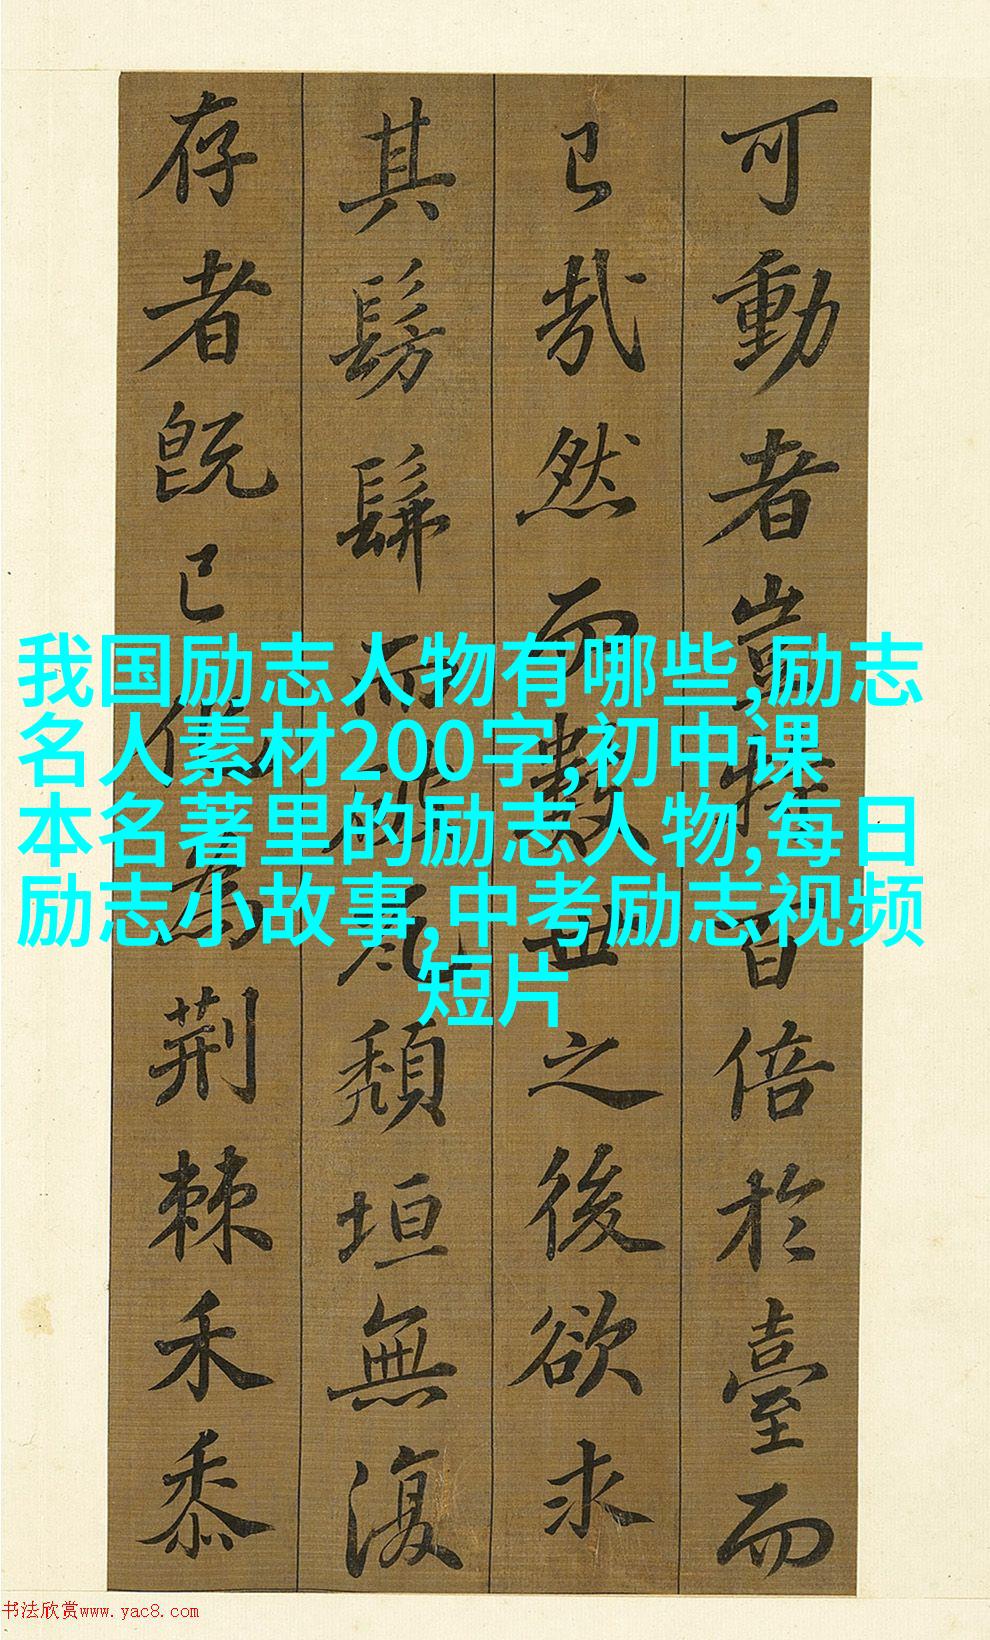 我国励志人物有哪些,励志
名人素材200字,初中课
本名著里的励志人物,每日
励志小故事,中考励志视频
短片
可動者豈特百倍於臺而
已哉然而數世之後欲求
其髣髴而破瓦頹垣無復
存者既已化為荊棘禾黍
书法欣赏www.yac8.com